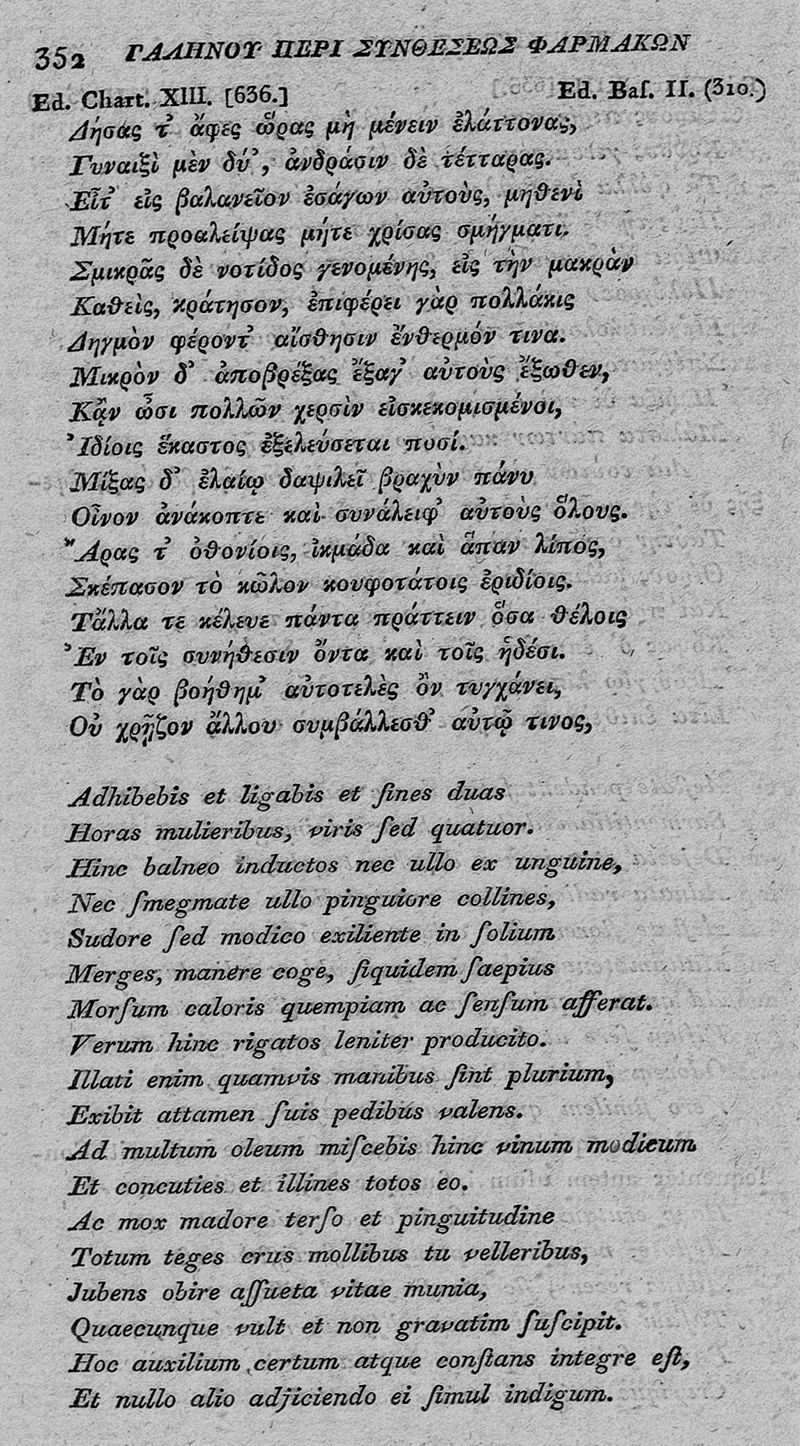 352 ΓΑΛΗΝΟΥ ΠΕΡΙ ΣΥΝΘΕΣΕΩΣ ΦΑΡΜΑΚΩΝ
Ed. Chart. XIII. [636.] Ed. Baſ. II. (310.)
Δήσας τ᾽ ἄφες ὥρας μὴ μένειν ἐλάττονας,
Γυναιξὶ μὲν δύ᾽, ἀνδράσιν δὲ τέτταρας.
Εἶτ᾽ εἰς βαλανεῖον ἐσάγων αὐτοὺς, μηθενὶ
Μήτε προαλείψας μήτε χρίσας σμήγματι.
Σμικρᾶς δὲ νοτίδος γενομένης, εἰς τὴν μακρὰν
Καθεὶς, κράτησον, ἐπιφέρει γὰρ πολλάκις
Δηγμὸν φέροντ᾽ αἴσθησιν ἔνθερμόν τινα.
Μικρὸν δ᾽ ἀποβρέξας ἔξαγ᾽ αὐτοὺς ἔξωθεν,
Κᾂν ὦσι πολλῶν χερσὶν εἰσκεκομισμένοι,
Ἰδίοις ἕκαστος ἐξελεύσεται ποσί.
Μίξας δ᾽ ἐλαίῳ δαψιλεῖ βραχὺν πάνυ
Οἶνον ἀνάκοπτε καὶ συνάλειφ᾽ αὐτοὺς ὅλους.
Ἄρας τ᾽ ὀθονίοις, ἰκμάδα καὶ ἅπαν λίπος,
Σκέπασον τὸ κῶλον κουφοτάτοις ἐριδίοις.
Τἄλλα τε κέλευε πάντα πράττειν ὅσα θέλοις
Ἐν τοῖς συνήθεσιν ὄντα καὶ τοῖς ἡδέσι.
Τὸ γὰρ βοήθημ᾽ αὐτοτελὲς ὂν τυγχάνει,
Οὐ χρῇζον ἄλλου συμβάλλεσθ᾽ αὐτῷ τινος,
Adhibebis et ligabis et ſines duas
Horas mulieribus, viris ſed quatuor.
Hinc balneo inductos nec ullo ex unguine,
Nec ſmegmate ullo pinguiore collines,
Sudore ſed modico exiliente in ſolium
Merges, manere coge, ſiquidem ſaepius
Morſum caloris quempiam ac ſenſum afferat.
Verum hinc rigatos leniter producito.
Illati enim quamvis manibus ſint plurium,
Exibit attamen ſuis pedibus valens.
Ad multum oleum miſcebis hinc vinum modicum
Et concuties et illines totos eo.
Ac mox madore terſo et pinguitudine
Totum teges crus mollibus tu velleribus,
Jubens obire aſſueta vitae munia,
Quaecunque vult et non gravatim ſuſcipit.
Hoc auxilium certum atque conſtans integre eſt,
Et nullo alio adjiciendo ei ſimul indigum.